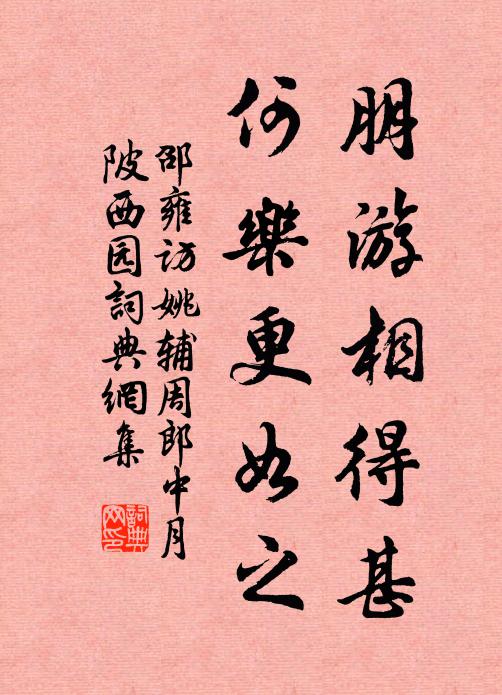 朋游相得甚
何樂更如之
邵雍访姚辅周郎中月
陂西园詞典網集
詞典
网印